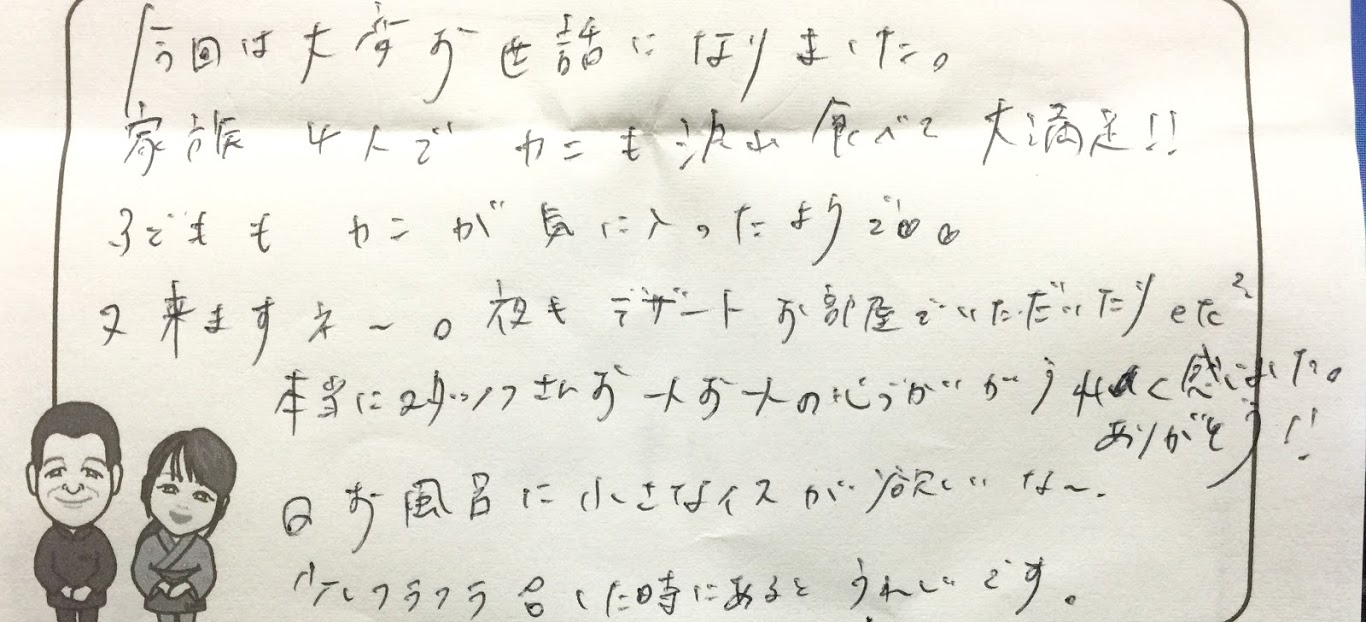 今回は大変お世話になりました。
家族4人でカニも沢山食べて大満足!!
子どももカニが気に入ったようで。
又来ますネ〜。夜もデザートお部屋でいただいたりetc
本当にスタッフさんお一人お一人の心づかいがうれしく感じました。
ありがとう!!
お風呂に小さなイスが欲しいな〜。
少しフラフラした時にあるとうれしいです。